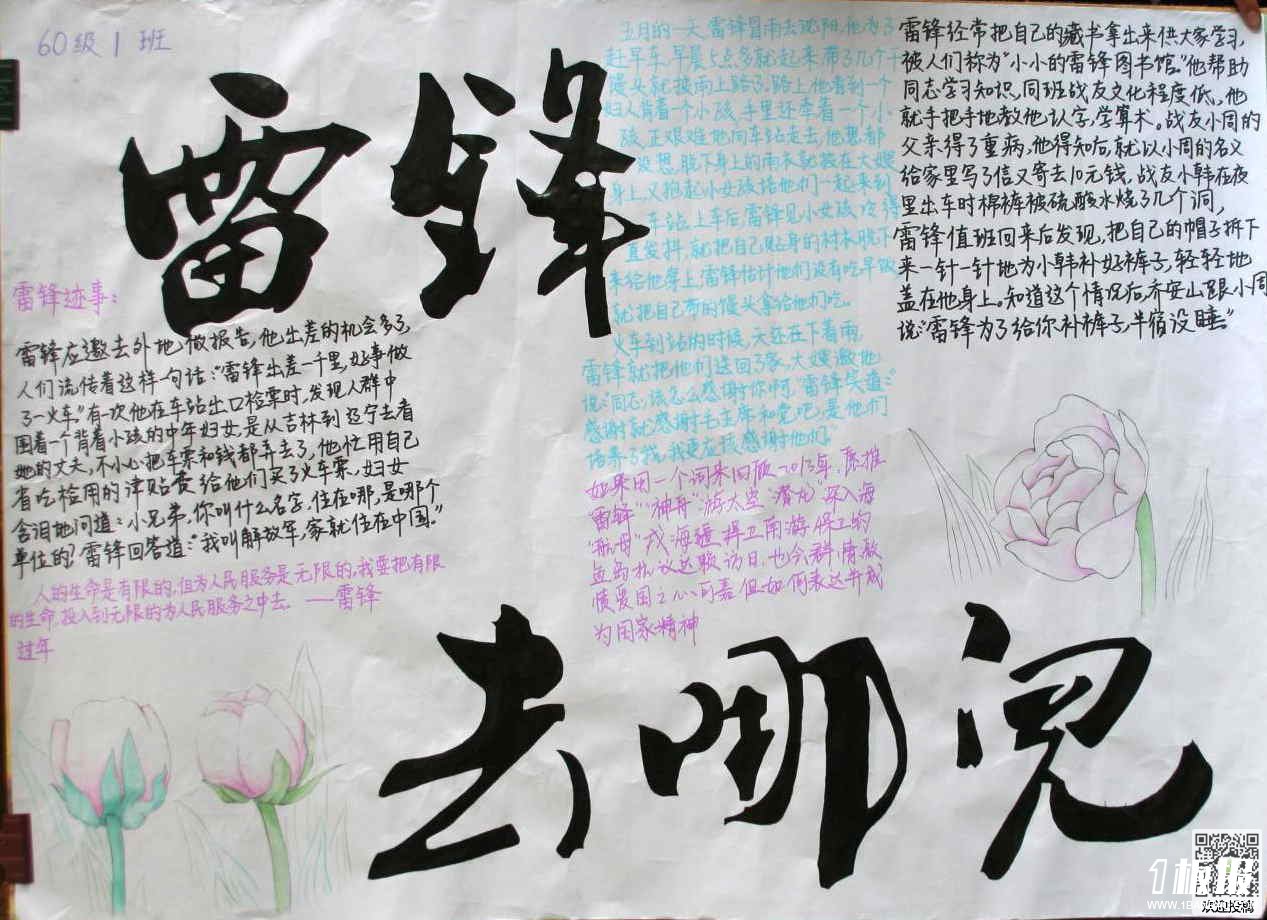 60级1班
雷锋
雷锋迹事：
雷锋应邀去外地做报告，他出差的机会多了，
人们流传着这样一句话：“雷锋出差一千里，好事做
了一火车。”有一次他在车站出口检票时，发现人群中
围着一个背着小孩的中年妇女，是从吉林到辽宁去看
她的丈夫，不小心把车票和钱都弄丢了，他忙用自己
省吃检用的津贴费给他们买了火车票，妇女
含泪地问道：小兄弟，你叫什么名字，住在哪，是哪个
单位的？雷锋回答道：“我叫解放军，家就住在中国。”
人的生命是有限的，但为人民服务是无限的，我要把有限
的生命，投入到无限的为人民服务之中去。——雷锋
过年
五月的一天，雷锋冒雨去沈阳，他为了
赶早车，早晨5点多就起来，带了几个干
馒头就披雨上路了，路上，他看到一个
妇人背着一个小孩，手里还牵着一个小
孩，正艰难地向车站走去，他想都
没想，脱下身上的雨衣就披在大嫂
身上，又抱起小女孩陪他们一起来到
车站，上车后，雷锋见小女孩冷得
直发抖，就把自己贴身的衬衣脱下
来给他穿上，雷锋估计他们没有吃早饭
就把自己带的馒头拿给他们吃。
火车到站的时候，天还在下着雨，
雷锋就把他们送回了家，大嫂激地
说：“同志，该怎么感谢你啊，雷锋笑道：“
感谢就感谢毛主席和党吧，是他们
培养了我，我更应该感谢他们。”
如果用一个词来回顾2013年，
“雷锋”“神舟”游太空“潜龙”深入海
“航母”戍海疆 捍卫南游
为国家精神
雷锋经常把自己的藏书拿出来供大家学习，
被人们称为“小小的雷锋图书馆。”他帮助
同志学习知识，同班战友文化程度低，他
就手把手地教他认字，学算术。战友小周的
父亲得了重病，他得知后，就以小周的名义
给家里写了信又寄去10元钱，战友小韩在夜
里出车时棉裤被硫酸水烧了几个洞，
雷锋值班回来后发现，把自己的帽子拆下
来一针一针地为小韩补好裤子，轻轻地
盖在他身上。知道这个情况后，乔安山跟小周
说：“雷锋为了给你补裤子，半宿没睡。”
去哪儿
1板报